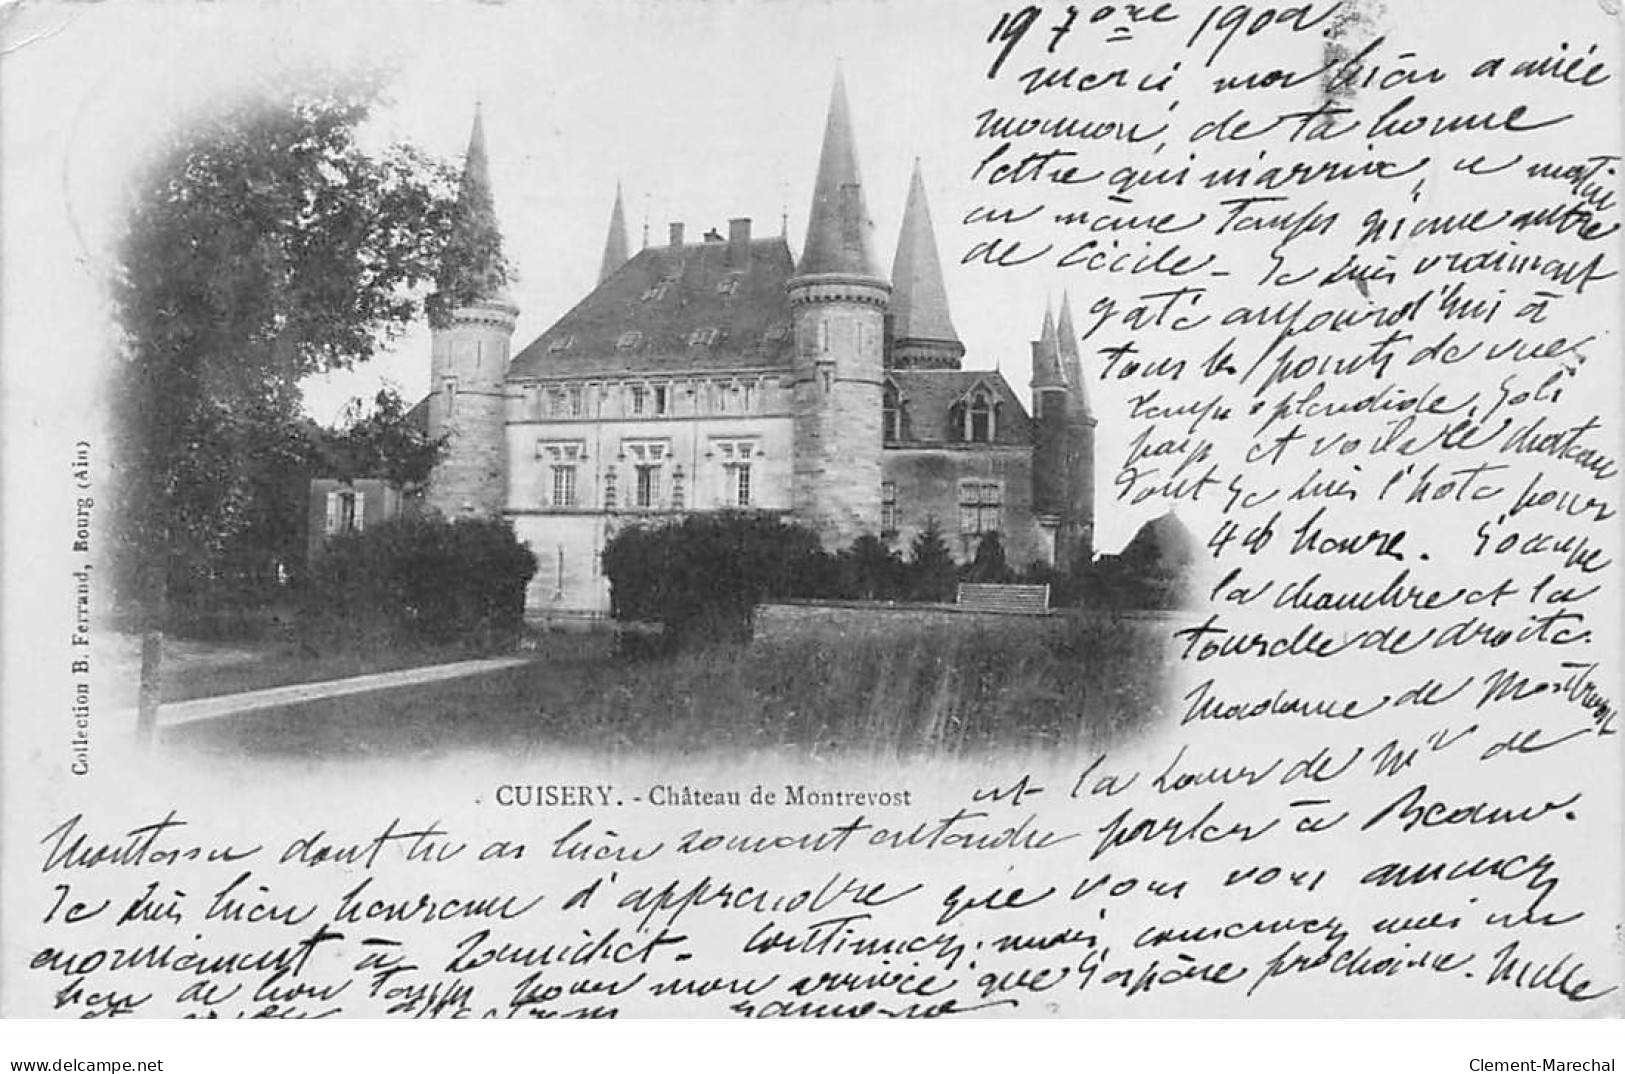 19 7bre 1902.
Merci, ma bien aimée
maman, de ta bonne
lettre qui m'arrive, ce matin
en même temps qu'une autre
de Cécile - Je suis vraiment
gâté aujourd'hui à
tous les points de vue.
temps splendide, joli
pays et voilà le château
dont je suis l'hôte pour
48 heures. J'occupe
la chambre et la
tourelle de droite.
Madame de Montrevost
est la sœur de Mr de
CUISERY. - Château de Montrevost
dont tu as bien souvent entendu parler à Beaune.
Je suis bien heureux d'apprendre que vous vous amusez
énormément à . Continuez, mais conservez moi un
peu de bon temps pour mon arrivée que j'espère prochaine. Mille
et
Collection B. Ferrand, Bourg (Ain)
www.delcampe.net
Clement-Marechal